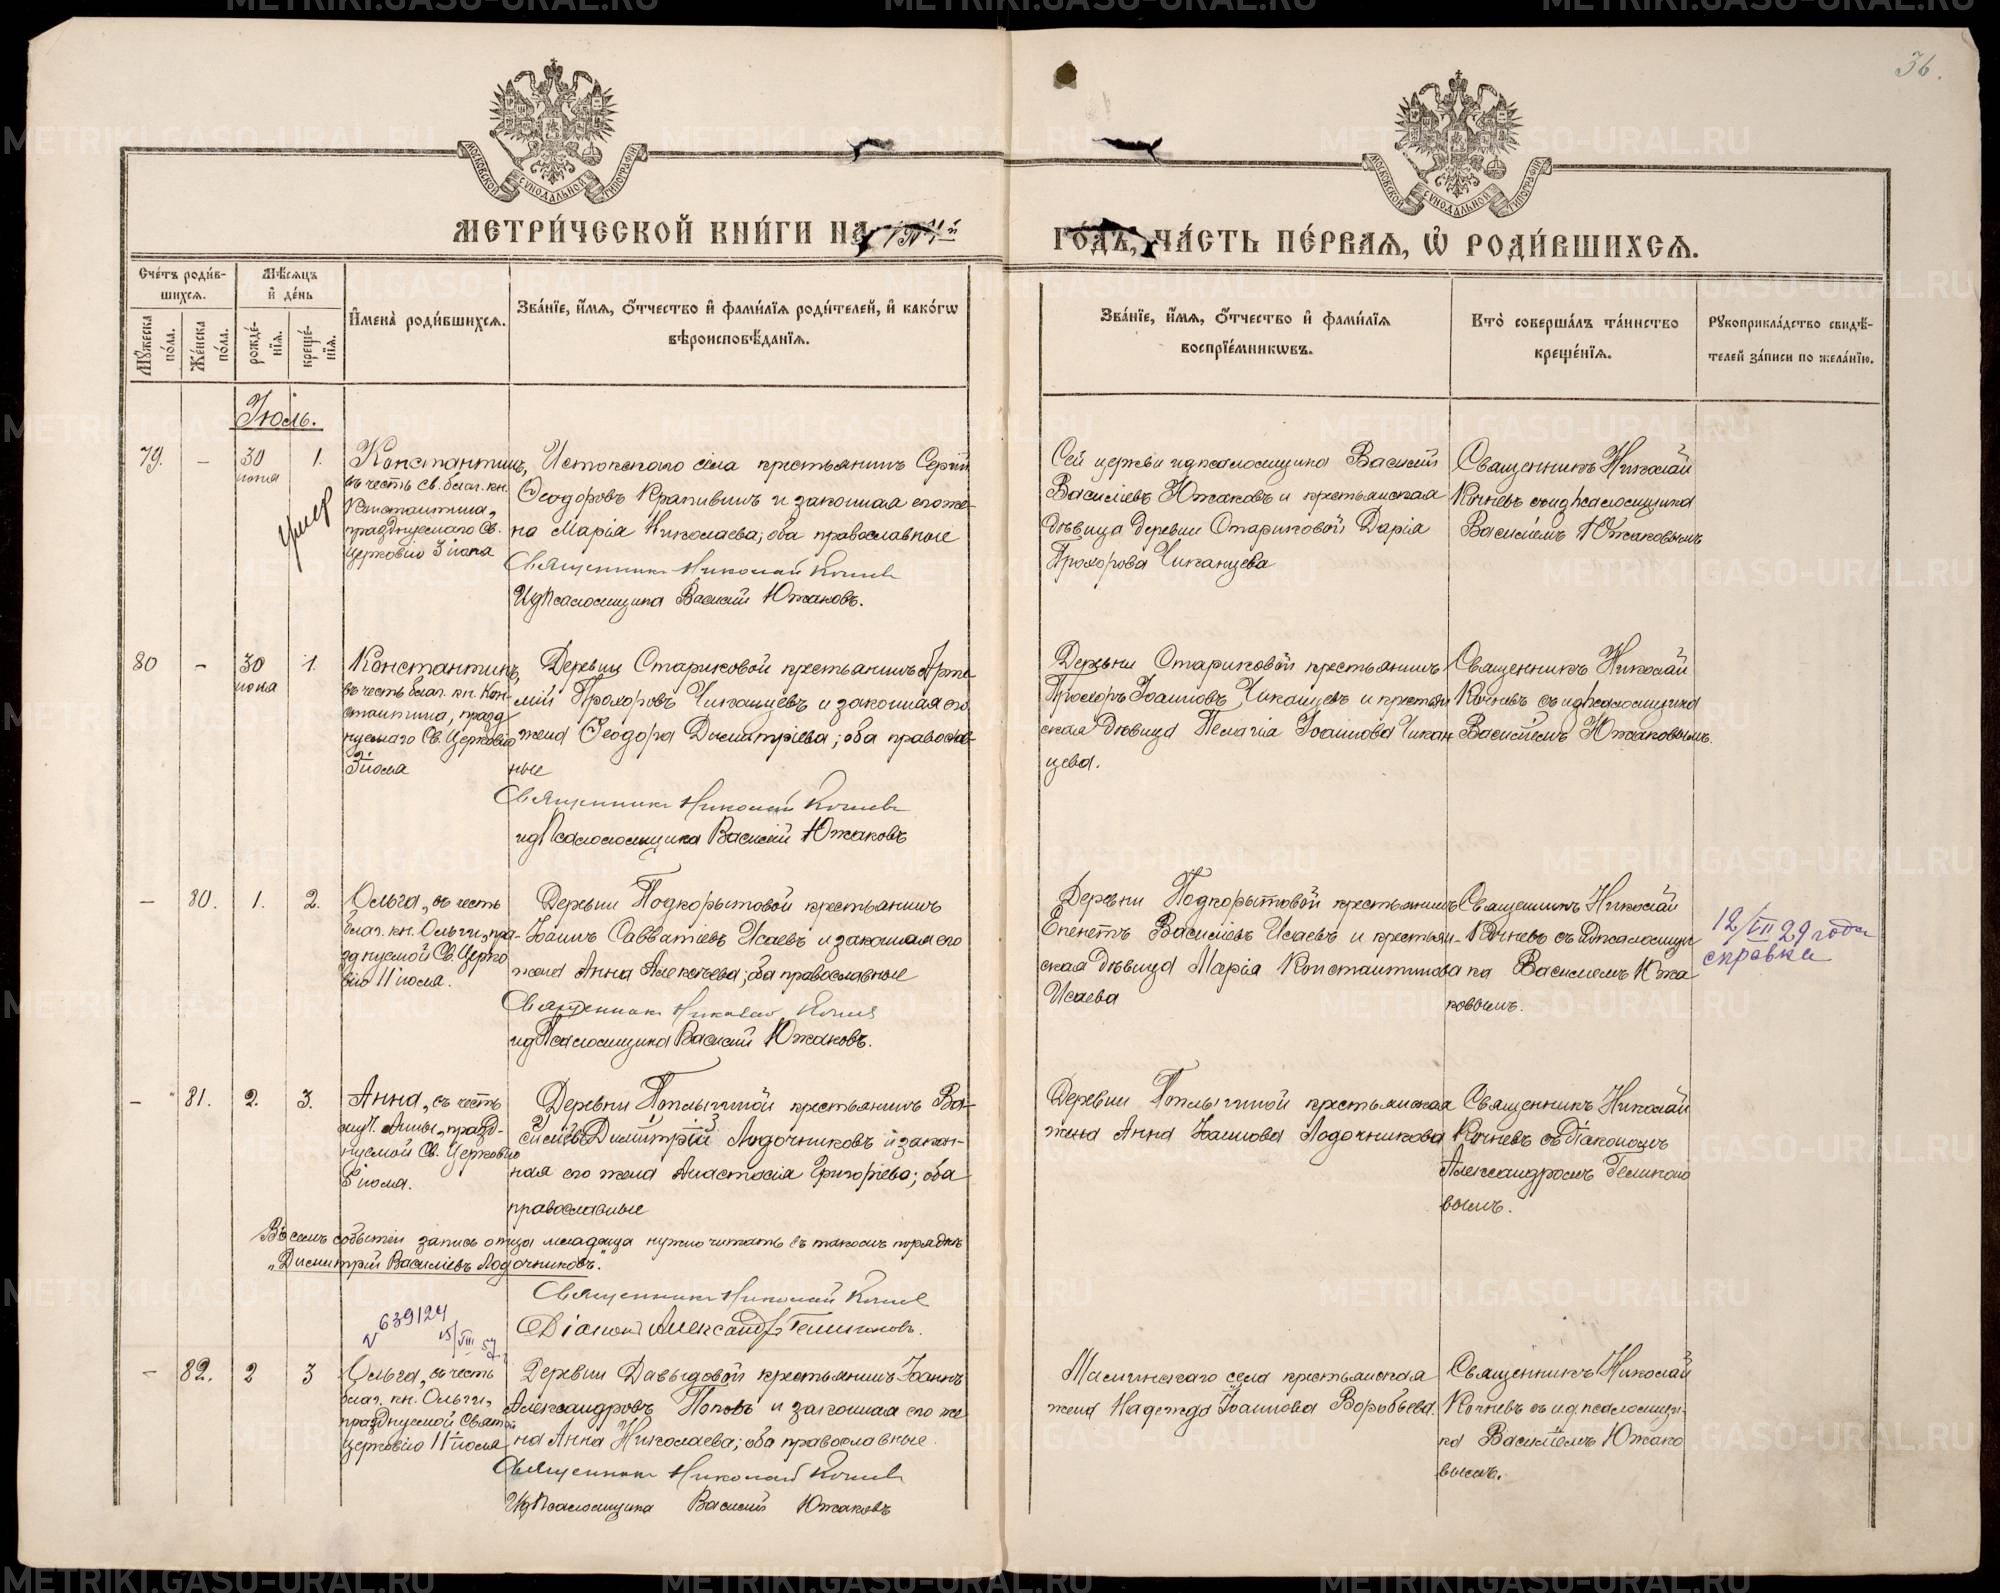 36.
МОСКОВСКОЙ СѴНОДАЛЬНОЙ ТИПОГРАФІИ
МОСКОВСКОЙ СѴНОДАЛЬНОЙ ТИПОГРАФІИ
МЕТРИ́ЧЕСКОЙ КНИ́ГИ НА
ГО́ДЪ, ЧА́СТЬ ПЕ́РВАЯ, Ѽ РОДИ́ВШИХСЯ.
Сче́тъ роди́в-
шихся.
Мѣ́сяцъ
и҆ де́нь
Мꙋ́жеска
по́ла.
Же́нска
по́ла.
рожде́-
нїя.
креще́-
нїя.
И҆мена̀ роди́вшихся.
Зва́нїе, и҆́мя, ѻ҆́тчество и҆ фами́лїя роди́телей, и҆ како́гѡ
вѣроисповѣ́данїя.
Зва́нїе, и҆́мя, ѻ҆́тчество и҆ фами́лїя
воспрїе́мникѡвъ.
Кто̀ соверша́лъ та́инство
креще́нїя.
Рꙋкоприкла́дство свидѣ́-
телей за́писи по жела́нїю.
Іюль.
79.
–
30
іюня
1.
Умер
Константинъ,
въ честь св. благ. кн.
Константина,
празднуемаго Св.
Церковію 3 іюля
Истокскаго села крестьянинъ Сергій
Ѳеодоровъ Крапивинъ и законная его же-
на Марія Николаева; оба православные
Священникъ Николай Кочневъ
И д Псаломщика Василій Южаковъ.
Сей церкви и д псаломщика Василій
Василіевъ Южаковъ и крестьянская
дѣвица деревни Стариковой Дарія
Прохорова Чиканцева
Священникъ Николай
Кочневъ съ и д псаломщика
Василіемъ Южаковымъ
80
–
30
іюня
1.
Константинъ,
въ честь благ. кн. Кон-
стантина, празд-
нуемаго Св. Церковію
3 іюля
Деревни Стариковой крестьянинъ Арте-
мій Прохоровъ Чиканцевъ и законная его
жена Ѳеодора Димитріева; оба православ-
ные
Священникъ Николай Кочневъ
и д Псаломщика Василій Южаковъ
Деревни Стариковой крестьянинъ
Прохоръ Іоанновъ Чиканцевъ и крестьян
ская дѣвица Пелагія Іоаннова Чикан
цева.
Священникъ Николай
Кочневъ съ и д псаломщика
Василіемъ Южаковымъ.
–
80.
1.
2.
Ольга, въ честь
благ. кн. Ольги, пра-
зднуемой Св. Церко
вію 11 іюля.
Деревни Подкорытовой крестьянинъ
Іоаннъ Савватіевъ Исаевъ и законная его
жена Анна Алексѣева; оба православные
Священникъ Николай Кочневъ
и д Псаломщика Василій Южаковъ.
Деревни Подкорытовой крестьянинъ
Епенетъ Василіевъ Исаевъ и крестьян-
ская дѣвица Марія Константинова
Исаева
Священникъ Николай
Кочневъ съ и д псаломщи
ка Василіемъ Южа
ковымъ.
12/VII 29 года
справка
–
81.
2.
3.
Анна, въ честь
муч. Анны, празд-
нуемой Св. Церковію
5 іюля.
Деревни Потлыгиной крестьянинъ Ва-
силіевъ Димитрій Лодочниковъ и закон-
ная его жена Анастасія Григоріева; оба
православные
Въ семъ событіи запись отца младенца нужно читать въ такомъ порядкѣ
„Димитрій Василіевъ Лодочниковъ."
Священникъ Николай Кочневъ
Діаконъ Александръ
Деревни Потлыгиной крестьянская
жена Анна Іоаннова Лодочникова
Священникъ Николай
Кочневъ съ діакономъ
Александромъ
вымъ.
№ 639124
15/VIII 57
–
82.
2
3
Ольга, въ честь
благ. кн. Ольги,
празднуемой Святой
Церковію 11 іюля
Деревни Давыдовой крестьянинъ Іоаннъ
Александровъ Поповъ и законная его же
на Анна Николаева; оба православные.
Священникъ Николай Кочневъ
И д Псаломщика Василій Южаковъ
Маминскаго села крестьянская
жена Надежда Іоаннова Воробьева.
Священникъ Николай
Кочневъ съ и д псаломщи-
ка Василіемъ Южако
вымъ.
METRIKI.GASO-URAL.RU